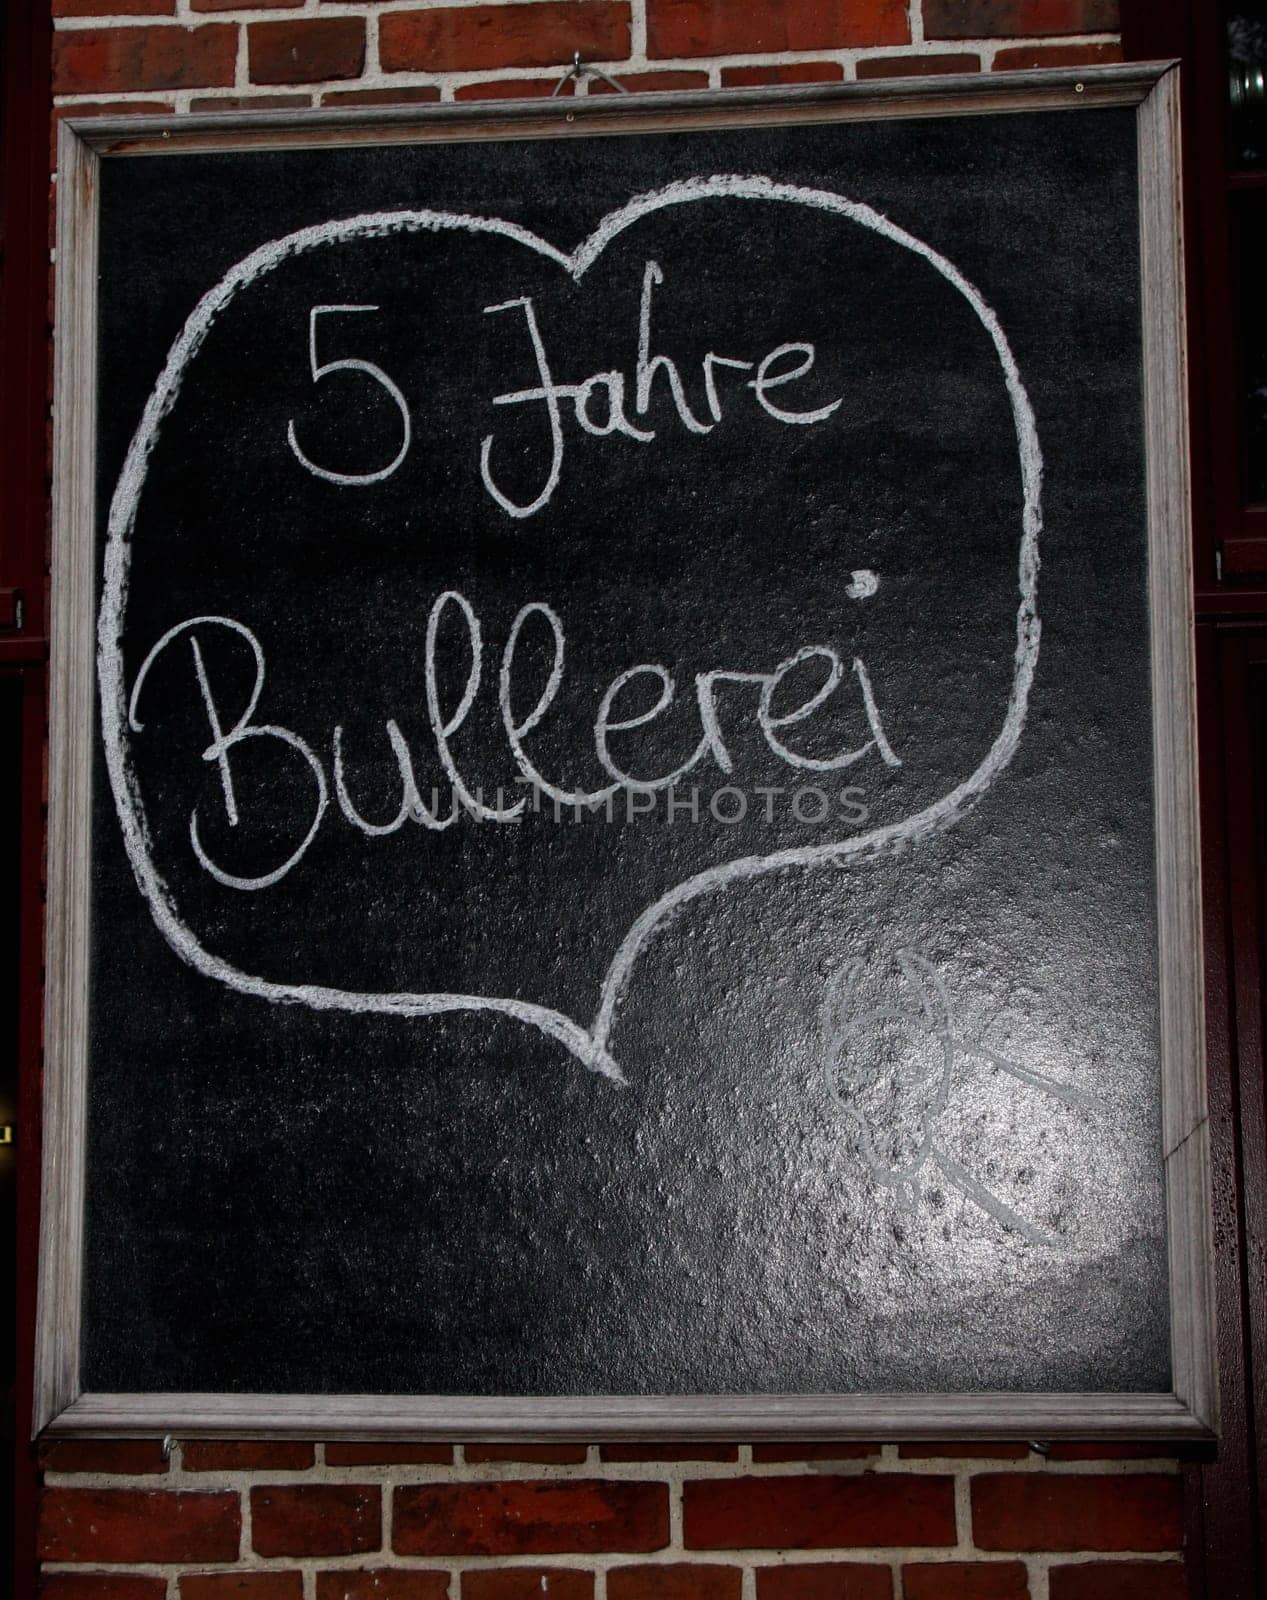 5 Jahre
Bullerei
UNLIMPHOTOS